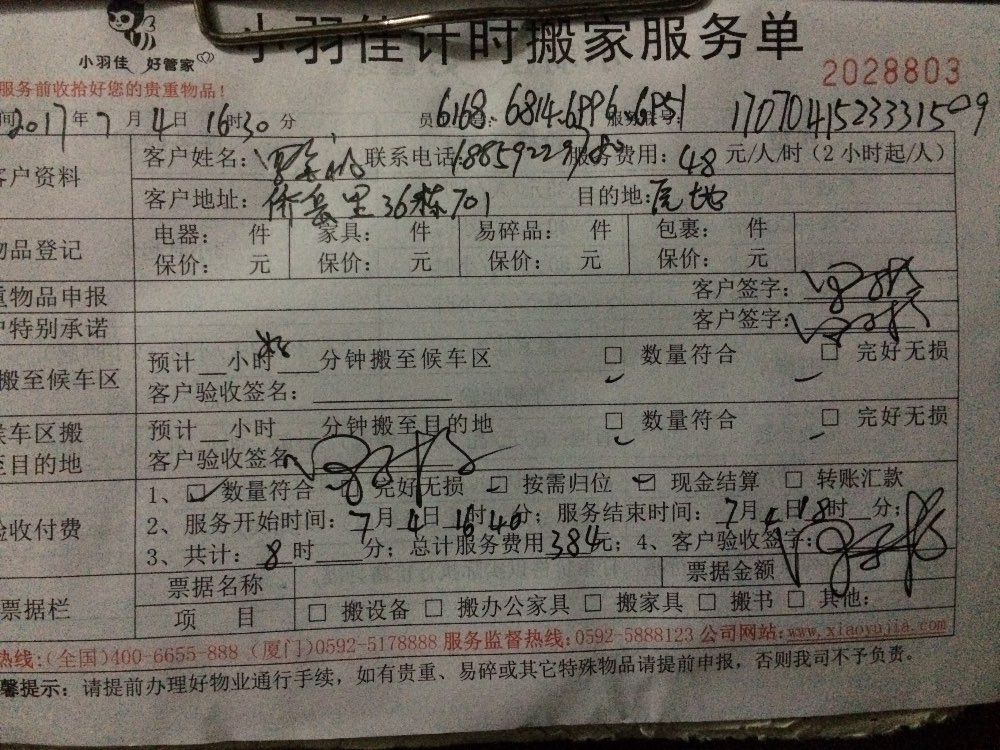 小羽佳 好管家
小羽佳计时搬家服务单
2028803
服务前收拾好您的贵重物品!
间 2017年 7月 4日 16时30分 员 6168.6814.6996.6951 17070415233315009
客户资料 客户姓名: 联系电话: 服务费用: 48 元/人/时(2小时起/人)
客户地址: 36栋701 目的地:
物品登记 电器: 件 家具: 件 易碎品: 件 包裹: 件
保价: 元 保价: 元 保价: 元 保价: 元
重物品申报 客户签字:
户特别承诺 客户签字:
搬至候车区 预计__小时___分钟搬至候车区 □ 数量符合 □ 完好无损
客户验收签名:
候车区搬至目的地 预计__小时___分钟搬至目的地 □ 数量符合 □ 完好无损
客户验收签名
验收付费 1、□ 数量符合 □ 完好无损 □ 按需归位 □ 现金结算 □ 转账汇款
2、服务开始时间: 7月 4日 16时40分; 服务结束时间: 7月 4日 18时__分;
3、共计: 8 时___分; 总计服务费用 384元; 4、客户验收签字:
票据栏 票据名称 票据金额
项 目 □ 搬设备 □ 搬办公家具 □ 搬家具 □ 搬书 □ 其他:
热线:(全国)400-6655-888 (厦门)0592-5178888 服务监督热线:0592-5888123 公司网站:www.xiaoyujia.com
馨提示: 请提前办理好物业通行手续,如有贵重、易碎或其它特殊物品请提前申报,否则我司不予负责。